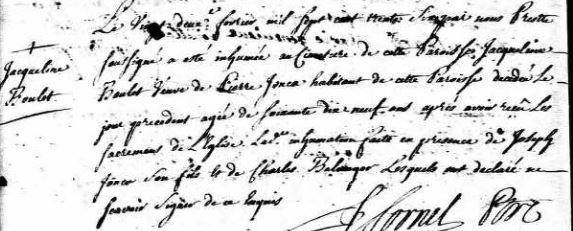 Le Vingt deux fevrier mil sept cent trente par nous Prestre
+
Jacqueline
Boulet
soussigné a esté inhumée au Cimetiere de cette Paroisse Jacqueline
Boulet Veuve de Pierre Joncas habitant de cette Paroisse decedée Le
jour precedent agée de soixante dix neuf ans après avoir reçu Les
sacremens de L'Eglise La de inhumation faite en presence de Joseph
Jonca Son fils & de Charles Belanger Lesquels ont declaré ne
scavoir signer de ce Enquis
Ptre